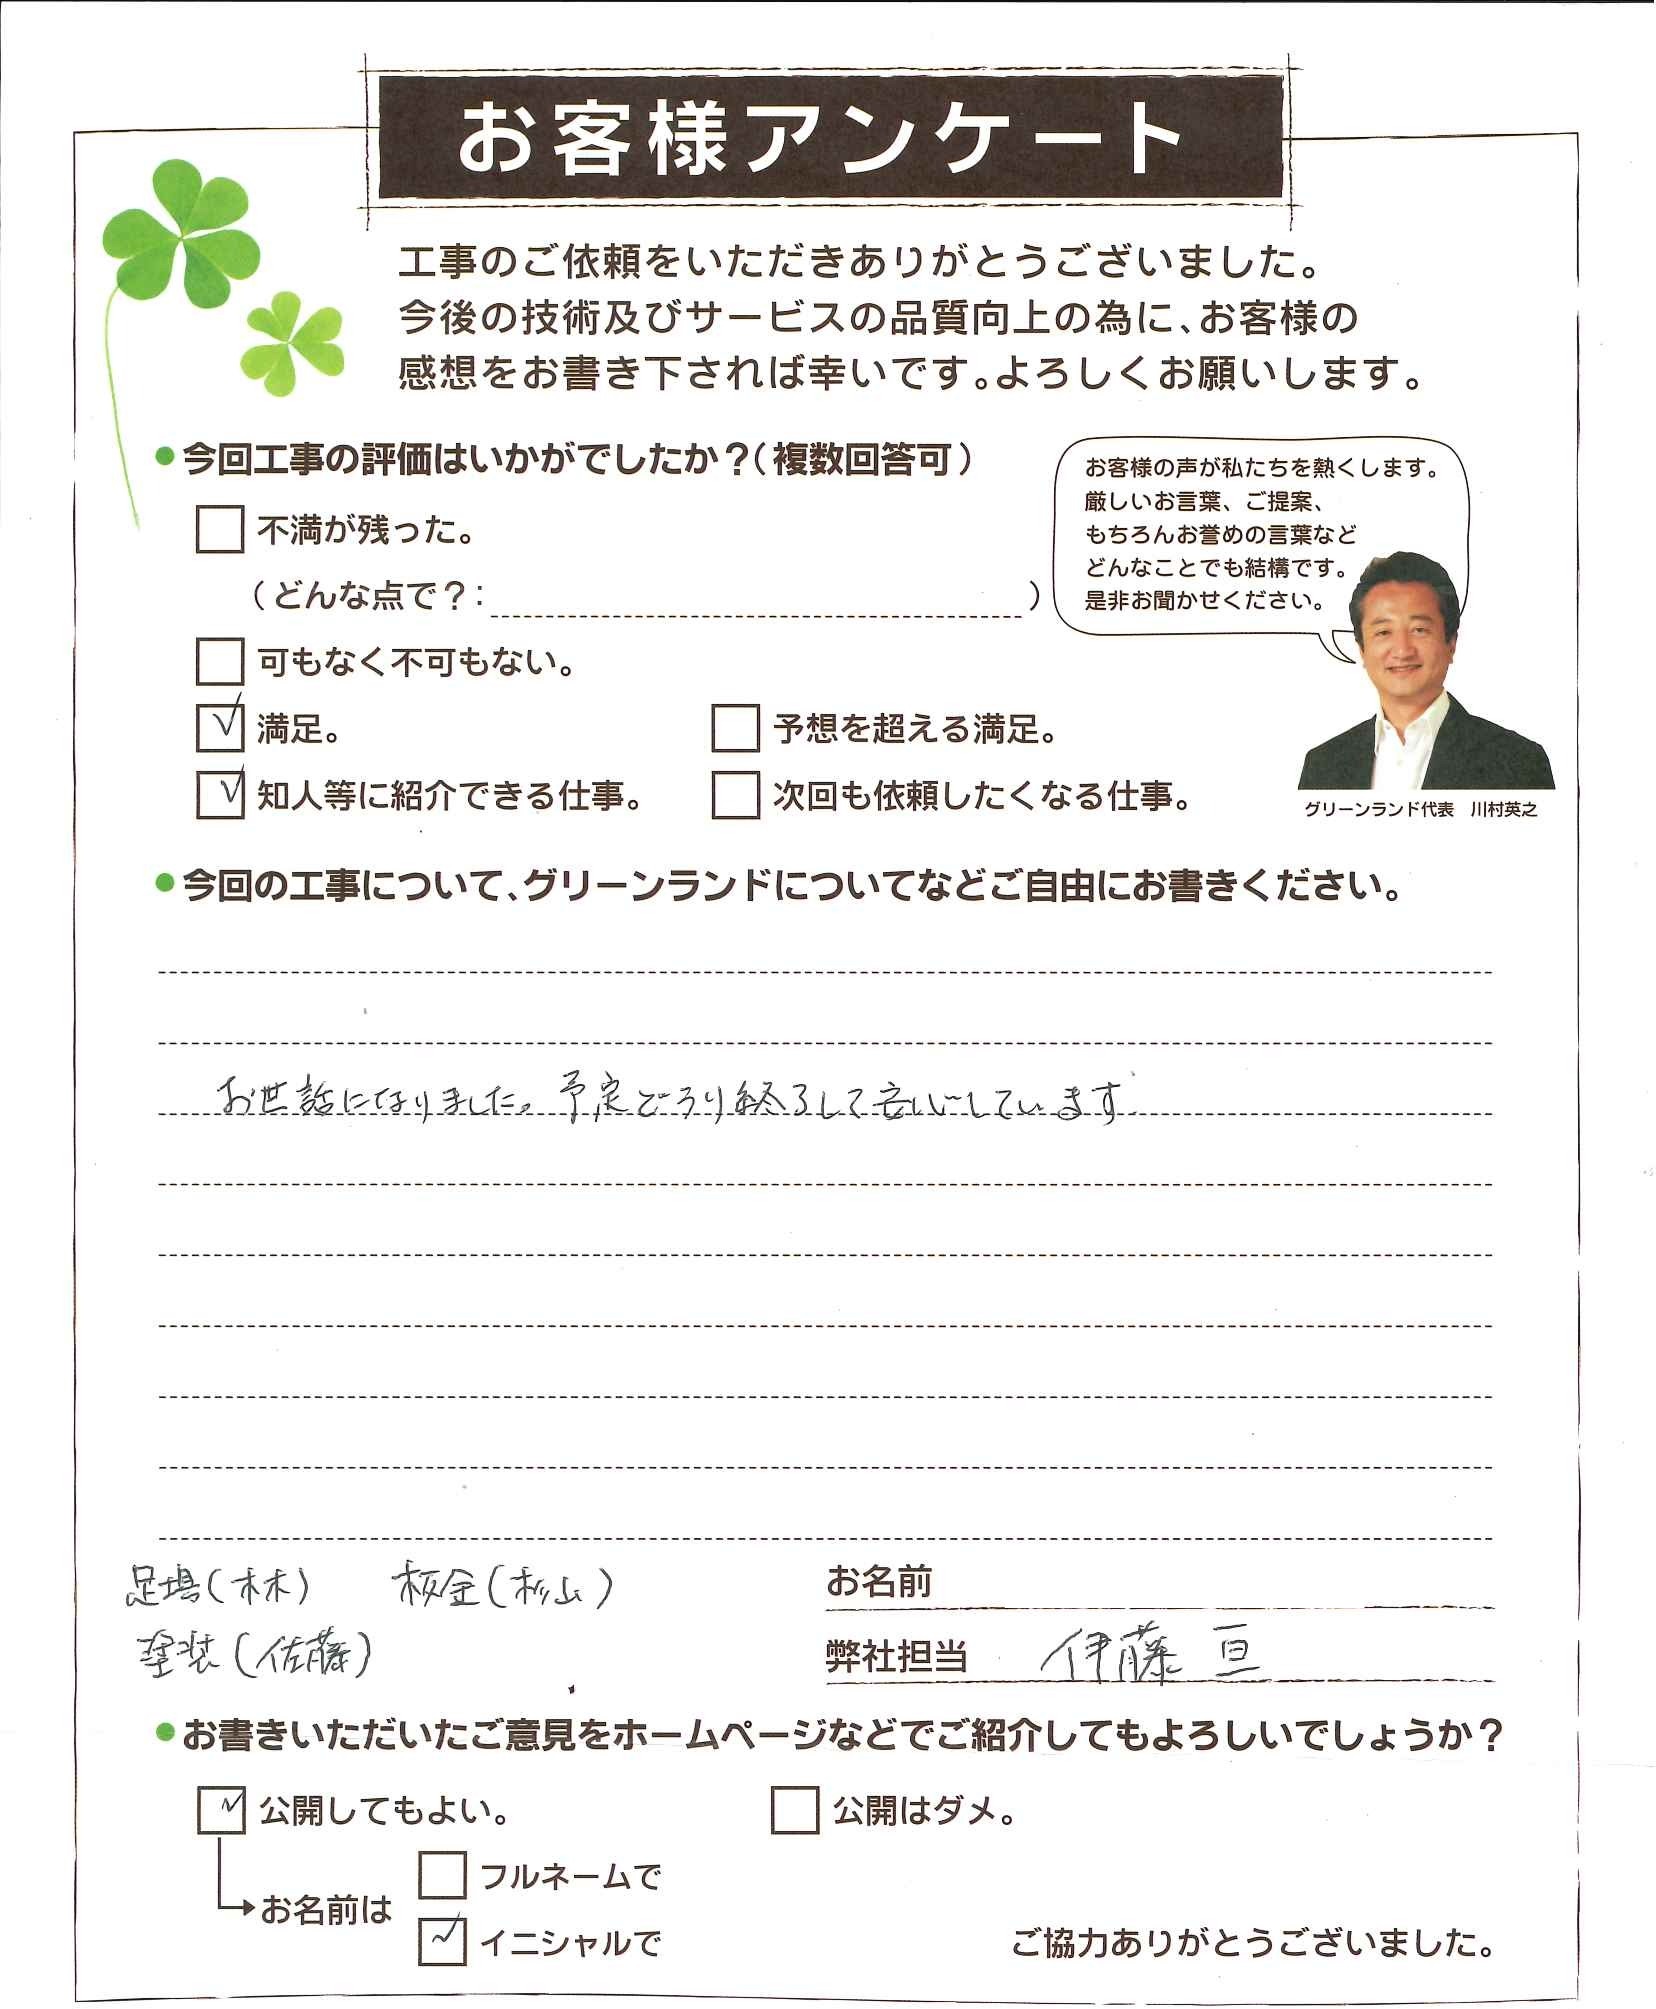 お客様アンケート
工事のご依頼をいただきありがとうございました。
今後の技術及びサービスの品質向上の為に、お客様の
感想をお書き下されば幸いです。よろしくお願いします。
●今回工事の評価はいかがでしたか？（複数回答可）
不満が残った。
（どんな点で？：　　　）
可もなく不可もない。
満足。
予想を超える満足。
知人等に紹介できる仕事。
次回も依頼したくなる仕事。
お客様の声が私たちを熱くします。
厳しいお言葉、ご提案、
もちろんお誉めの言葉など
どんなことでも結構です。
是非お聞かせください。
グリーンランド代表　川村英之
●今回の工事について、グリーンランドについてなどご自由にお書きください。
お世話になりました。予定どうり終了して安心しています
足場（林）　板金（杉山）
塗装（佐藤）
お名前
弊社担当　伊藤 亘
●お書きいただいたご意見をホームページなどでご紹介してもよろしいでしょうか？
公開してもよい。
公開はダメ。
お名前は
フルネームで
イニシャルで
ご協力ありがとうございました。